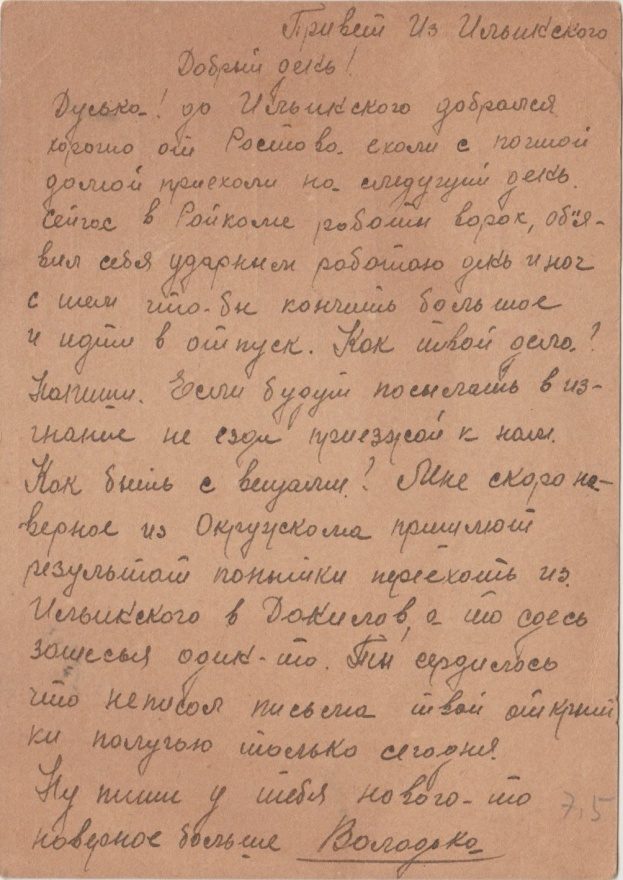 Привет Из Ильинского
Добрый день!
Дуська! до Ильинского добрался
хорошо от Ростова ехали с почтой
домой приехали на следущий день.
Сейчас в Райкоме работы ворох, объя-
вил себя ударным работаю день и ноч
с тем что-бы кончить большое
и идти в отпуск. Как твои дела?
Напиши. Если будут посылать в из-
гнание не езди приезжай к нам.
Как быть с вещами? Мне скоро на-
верное из Окружкома пришлют
результат попытки переехать из
Ильинского в Данилов, а то здесь
один-то. Ты сердилась
что неписал письма твои открыт
ки получаю только сегодня.
Ну пиши у тебя нового-то
наверное больше Володька
7,5